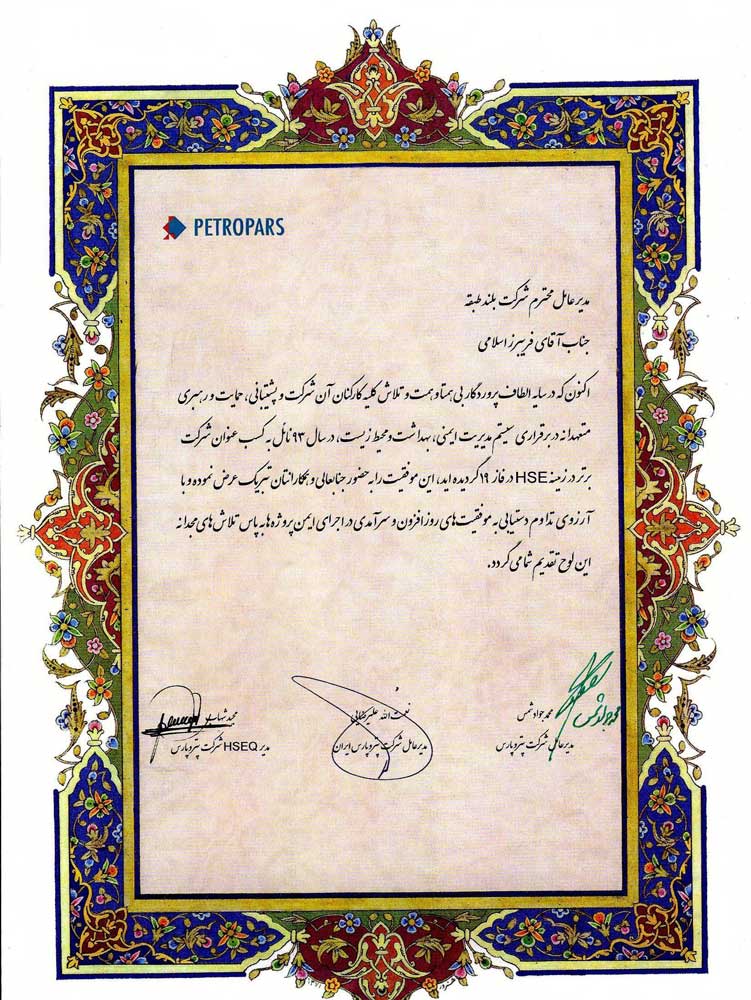 PETROPARS
مدیرعامل محترم شرکت بلند طبقه
جناب آقای فریبرز اسلامی
اکنون که در سایه الطاف پروردگار بی همتا و همت و تلاش کلیه کارکنان آن شرکت و پشتیبانی، حمایت و رهبری
متعهدانه در برقراری سیستم مدیریت ایمنی، بهداشت و محیط زیست، در سال ۹۳ نائل به کسب عنوان شرکت
برتر در زمینه HSE در فاز ۱۹ گردیده اید، این موفقیت را به حضور جنابعالی و همکارانتان تبریک عرض نموده و با
آرزوی تداوم دستیابی به موفقیت های روزافزون و سرآمدی در اجرای ایمن پروژه ها به پاس تلاش های مجدانه
این لوح تقدیم شما می گردد.
محمدجواد شمس نعمت الله علیرضایی مجید شهاب
مدیرعامل شرکت پتروپارس مدیرعامل شرکت پتروپارس ایران مدیر HSEQ شرکت پتروپارس